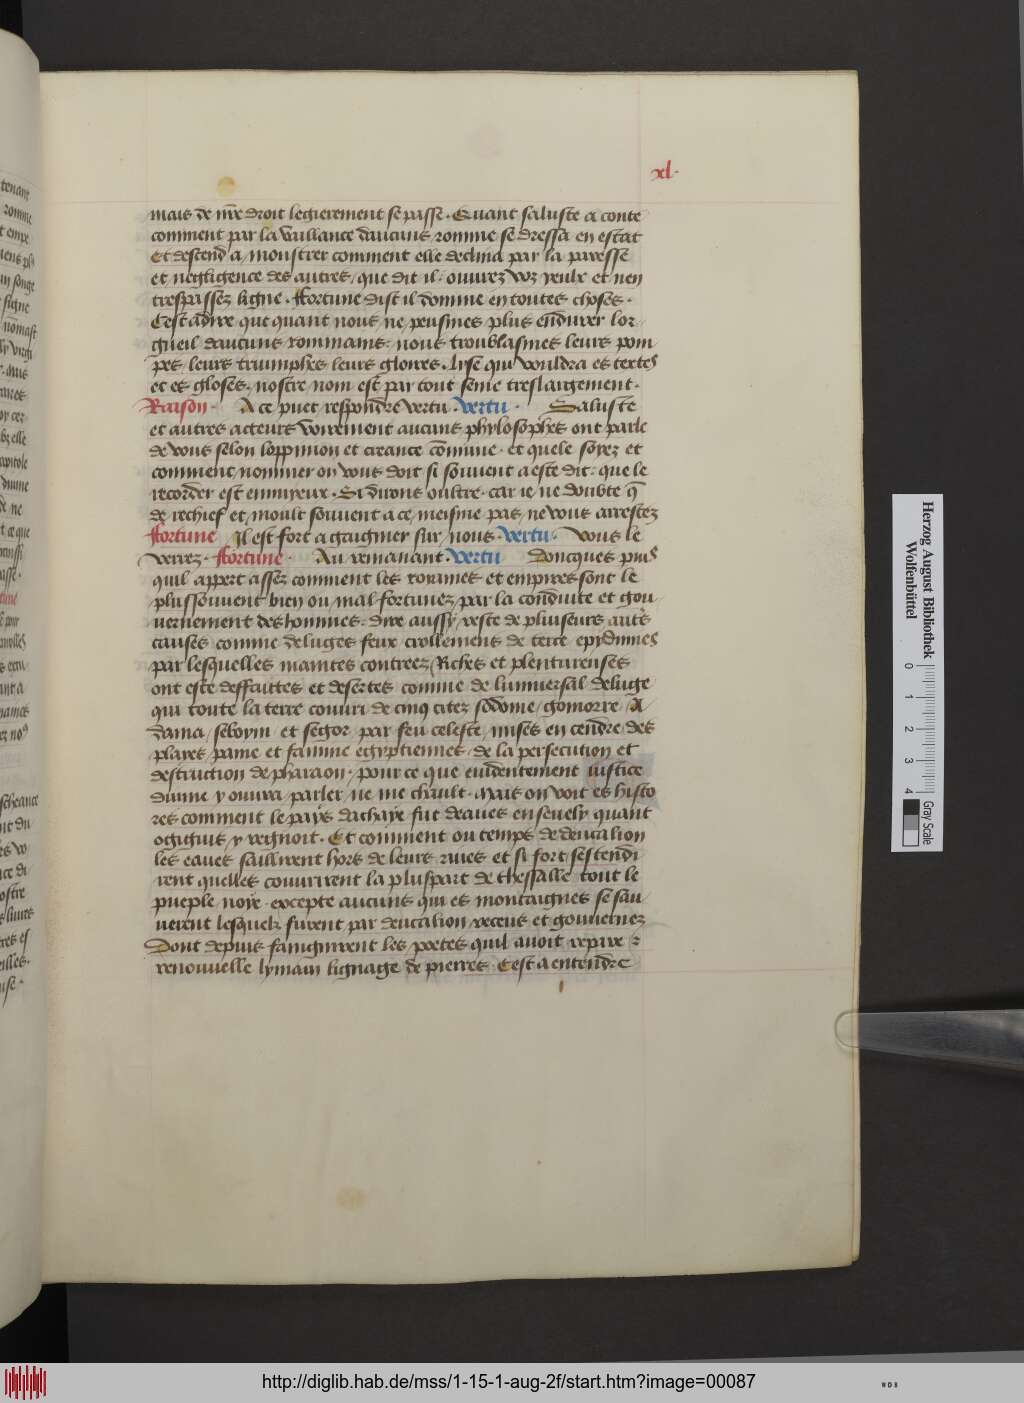 xl.
mais de nre droit legierement se passe. Quant saluste a conte
comment par la vaillance daucuns romme se dressa en estat
Et descend a monstrer comment elle declina par la paresse
et negligence des autres, que dit il. ouurez voz yeulx et nen
trespassez ligne. ffortune dist il domme en toutes choses.
Cest adire que quant nous ne peusmes plus endurer lor
gueil daucuns rommains. nous troublasmes leurs pom
pes, leurs triumphes leurs gloires. lise qui vouldra es textes
et es gloses. nostre nom est par tout seme treslargement.
Raison. A ce puet respondre vertu. vertu. Saluste
et autres acteurs voirement aucuns phylosophes ont parle
de vous selon loppinion et creance comune. et quele soyez et
comment nommer on vous doit si souuent a este dit. que le
recorder est ennuyeux. Si diuons oultre. car ie ne doubte q
de rechief et moult souuent a ce meisme pas ne vous arrestez
ffortune Il est fort a gaignier sur nous. vertu. vous le
verrez. ffortune. Au remanant. vertu Doncques puis
quil appert assez comment les roiames et empires sont le
plussouuent bien ou mal fortunez, par la conduite et gou
uernement des hommes. dire aussy reste de pluiseurs autrs
causes comme deluges feux crollemens de terre epydimies
par lesquelles maintes contreez, Riches et plentureuses
ont este deffaittes et desertes comme de luniuersal deluge
qui toute la terre couuri de cinq citez sodome, gomorre, A
dama, seboym et segor, par feu celeste, mises en cendre, des
playes, paine et famine egyptiennes, de la persecution et
destruction de pharaon. pour ce que euidentement iustice
diuine y ouura, parler ne me chault. Mais on voit es histo
res comment le pays dachaye fut deaues enseuely quant
ogigius, y regnoit. Et comment ou temps de deucalion
les eaues saillirent hors de leurs riues et si fort sestendi
rent quelles couurirent la pluspart de thessalle tout le
pueple noye. excepte aucuns qui es montaignes se sau
uerent lesquelz furent par deucalion receus et gouuernez
Dont depuis faingnirent les poetes quil auoit repare
renouuelle lymain lignage de pierres. Cest a entendre
Herzog August Bibliothek
Wolfenbüttel
0 1 2 3 4
Gray Scale
http://diglib.hab.de/mss/1-15-1-aug-2f/start.htm?image=00087